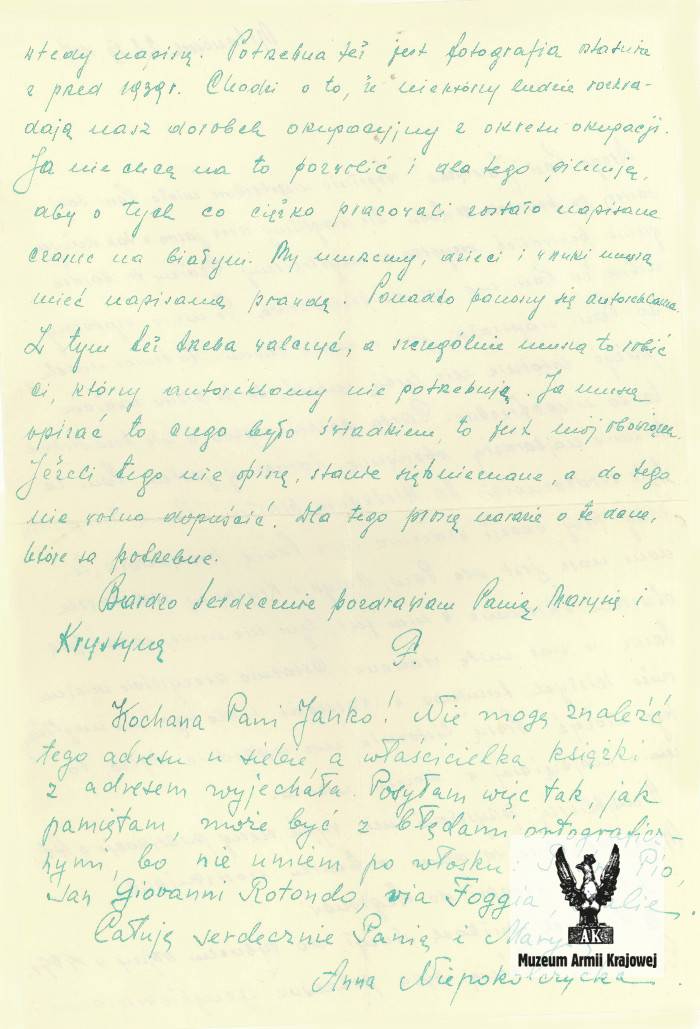 wtedy napiszę. Potrzebna też jest fotografia
z przed 1939r. Chodzi o to, że niektórzy ludzie rozkra-
dają nasz dorobek okupacyjny z okresu okupacji.
Ja nie chcę na to pozwolić i dla tego pilnuję,
aby o tych co ciężko pracowali zostało napisane
czarne na białym. My umrzemy, dzieci i wnuki muszą
mieć napisaną prawdę. Ponadto panoszy się autoreklama.
Z tym też trzeba walczyć, a szczególnie muszą to robić
ci, którzy autoreklamy nie potrzebują. Ja muszę
opisać to czego było świadkiem, to jest mój obowiązek.
Jeżeli tego nie opiszę, stanie się to nieznane, a do tego
nie wolno dopuścić. Dla tego proszę narazie o te dane,
które są potrzebne.
Bardzo serdecznie pozdrawiam Panią, Marysię i
Krystynę F.
Kochana Pani Janko! Nie mogę znaleźć
tego adresu u siebie, a właścicielka książki
z adresem wyjechała. Posyłam więc tak, jak
pamiętam, może być z błędami ortograficz-
nymi, bo nie umiem po włosku: Pio,
San Giovanni Rotondo, via Foggia,
Całuję serdecznie Panią i
Anna Niepokólczycka
AK
Muzeum Armii Krajowej